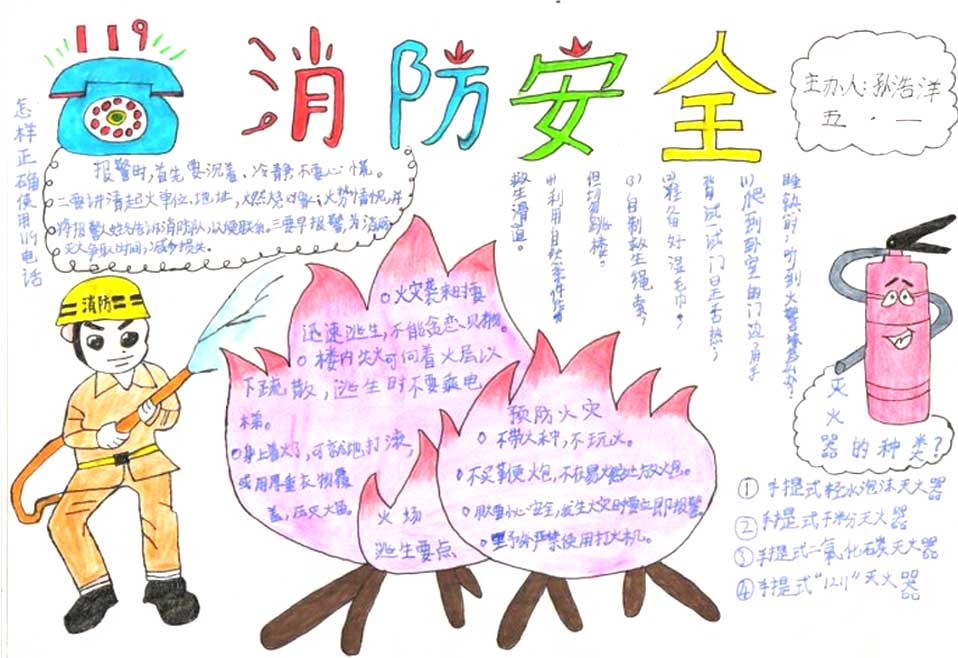 119
消防安全
主办人:孙浩洋
五·一
怎样正确使用119电话
报警时,首先要沉着、冷静不要心慌。
二要讲清起火单位、地址,燃烧对象、火势情况,并
将报警人姓名告诉消防队,以便联系。三要早报警,为消防
灭火争取时间,减少损失。
消防
睡熟时,听到火警
⑴爬到卧室的门边,用手
背试一试门是否热;
⑵准备好湿毛巾;
⑶自制救生绳索,
但切勿跳楼。
⑷利用自然条件
救生滑道。
火灾袭来时要
迅速逃生,不能贪恋财物。
楼内失火可向着火层以
下疏散,逃生时不要乘电
梯。
身上着火了,可就地打滚,
或用厚重衣物覆
盖,压灭火苗。
火场
逃生要点
预防火灾
不带火种,不玩火。
不买鞭炮,不在易燃处放火包。
发生火灾时要立即报警
野外严禁使用打火机。
灭
火
器的种类?
①手提式轻水泡沫灭火器
②手提式干粉灭火器
③手提式二氧化碳灭火器
④手提式"1211"灭火器